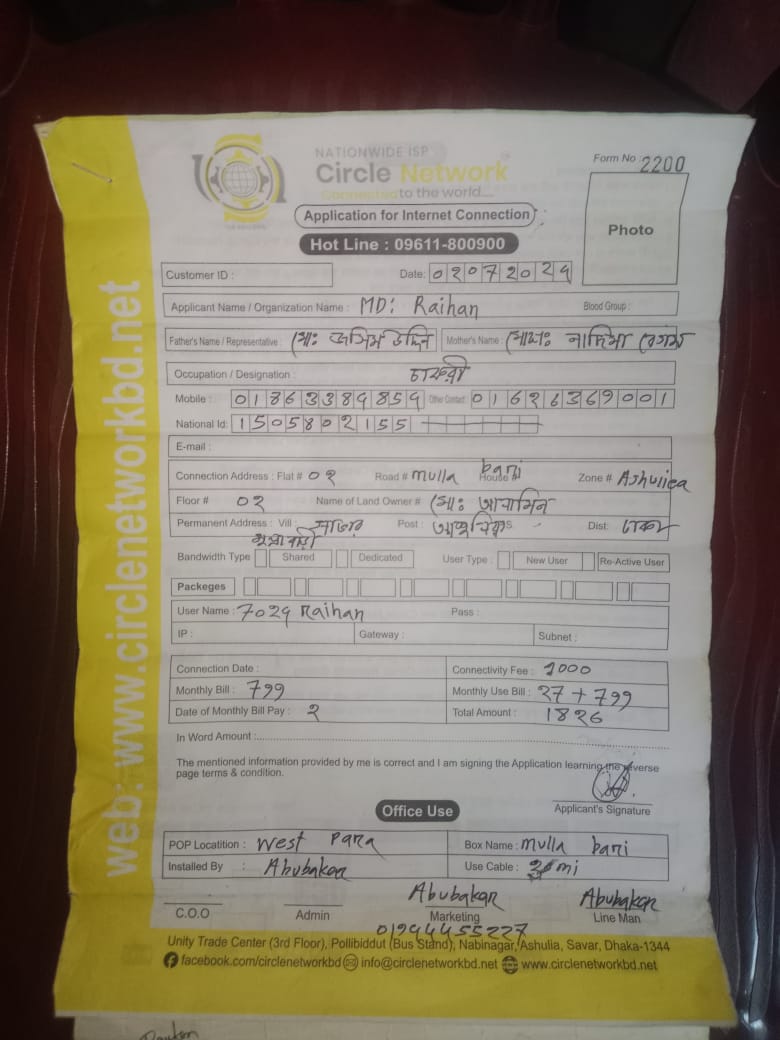 NATIONWIDE ISP
Circle Network
Connected to the world....
Form No : 2200
Application for Internet Connection
Photo
Hot Line : 09611-800900
Customer ID : Date: 02072024
Applicant Name / Organization Name : MD: Raihan Blood Group :
Father's Name / Representative : মোঃ জসিম উদ্দিন Mother's Name : মোছাঃ নাদিমা বেগম
Occupation / Designation : চাকরী
Mobile : 01863384854 Other Contact 01626369001
National Id: 1505802155
E-mail :
Connection Address : Flat # 02 Road # mulla bari House # Zone # Ashuliea
Floor # 02 Name of Land Owner # মোঃ
Permanent Address : Vill : সাভার Post : P.S. Dist: ঢাকা
Bandwidth Type Shared Dedicated User Type : New User Re-Active User
Packeges
User Name : 7024 Raihan Pass :
IP : Gateway : Subnet :
Connection Date : Connectivity Fee : 1000
Monthly Bill : 799 Monthly Use Bill : 27 + 799
Date of Monthly Bill Pay : 2 Total Amount : 1826
In Word Amount :
The mentioned information provided by me is correct and I am signing the Application learning the reverse
page terms & condition.
Applicant's Signature
Office Use
POP Locatition : West Para Box Name : mulla bari
Installed By : Abubakar Use Cable : mi
Abubakar Abubakar
C.O.O Admin Marketing Line Man
01944455227
Unity Trade Center (3rd Floor), Pollibiddut (Bus Stand), Nabinagar, Ashulia, Savar, Dhaka-1344
facebook.com/circlenetworkbd info@circlenetworkbd.net www.circlenetworkbd.net
web: www.circlenetworkbd.net